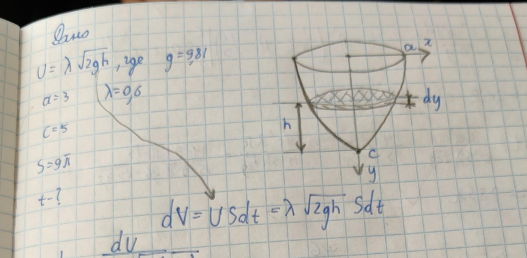 Дано
U = λ √2gh, где g = 9,81
a = 3 λ = 0,6
c = 5
S = 9π
t - ?
a x
dy
h
c
y
dV = U S dt = λ √2gh S dt
dV